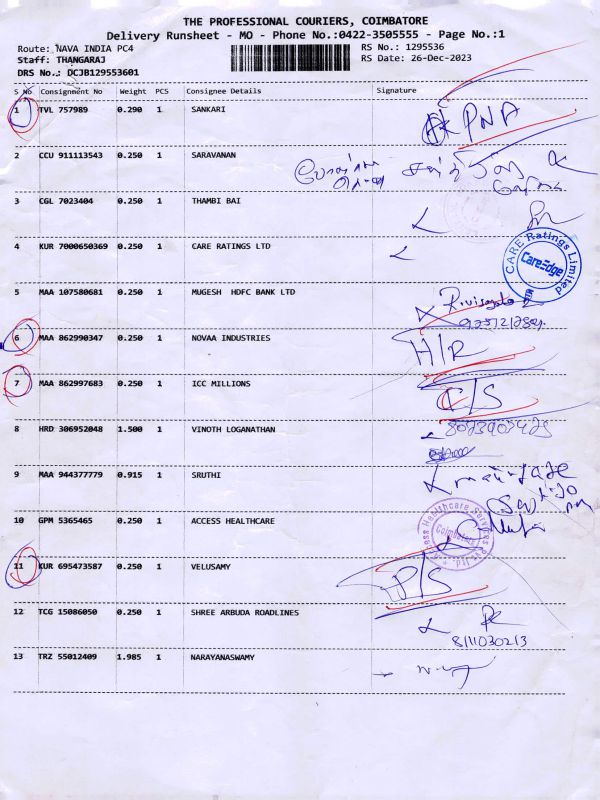 THE PROFESSIONAL COURIERS, COIMBATORE
Delivery Runsheet - MO - Phone No.:0422-3505555 - Page No.:1
Route: NAVA INDIA PC4 RS No.: 1295536
Staff: THANGARAJ RS Date: 26-Dec-2023
DRS No.: DCJB129553601
S No Consignment No Weight PCS Consignee Details Signature
1 TVL 757989 0.290 1 SANKARI PNA
2 CCU 911113543 0.250 1 SARAVANAN
3 CGL 7023404 0.250 1 THAMBI BAI
4 KUR 7000650369 0.250 1 CARE RATINGS LTD
CARE Ratings Limited
CareEdge
5 MAA 107580681 0.250 1 MUGESH HDFC BANK LTD
6 MAA 862990347 0.250 1 NOVAA INDUSTRIES H/R
7 MAA 862997683 0.250 1 ICC MILLIONS C/S
8 HRD 306952048 1.500 1 VINOTH LOGANATHAN
9 MAA 944377779 0.915 1 SRUTHI
10 GPM 5365465 0.250 1 ACCESS HEALTHCARE
Access Healthcare Services Pvt. Ltd.
Coimbatore
11 KUR 695473587 0.250 1 VELUSAMY P/S
12 TCG 15086050 0.250 1 SHREE ARBUDA ROADLINES
13 TRZ 55012409 1.985 1 NARAYANASWAMY